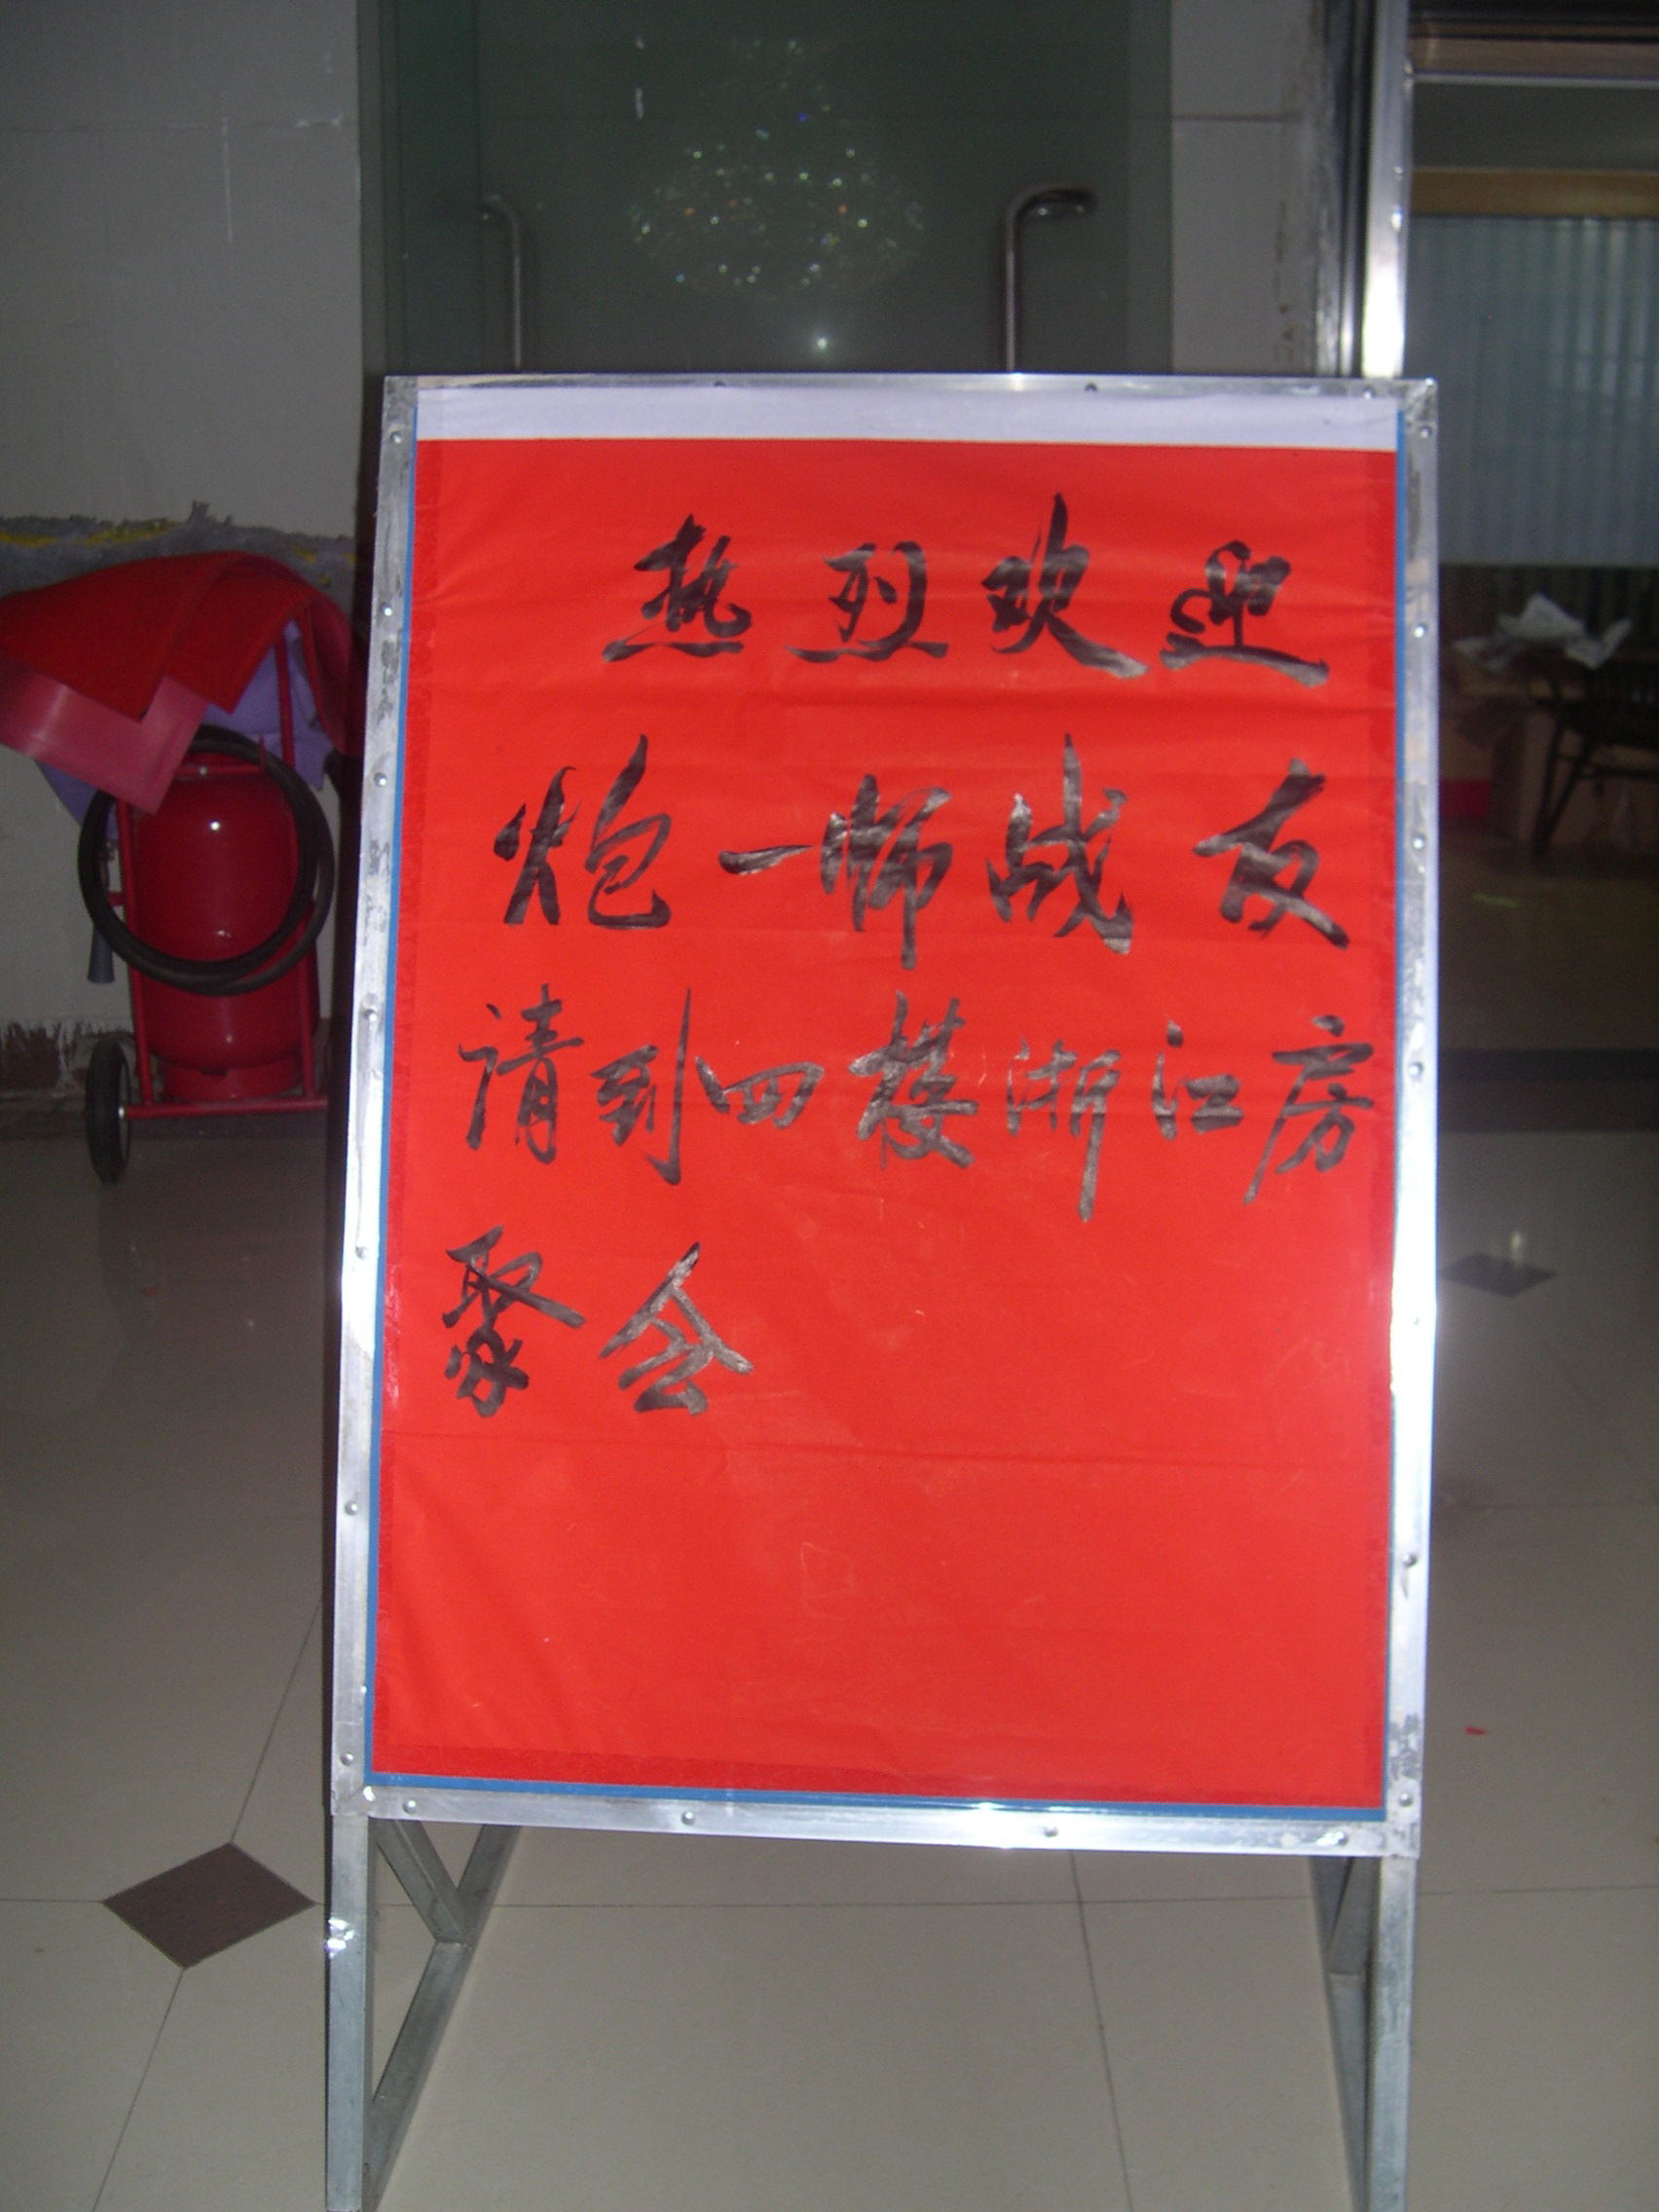 热烈欢迎
炮一师战友
请到四楼浙江房
聚会